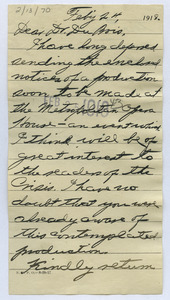 2/12/70
Feby 2nd, 1918.
Dear Dr. Du Bois,
I have long deferred
sending the enclosed
notices of a production
soon to be made at
the Metropolitan Opera
House — an event which
I think will be of
great interest to
the readers of the
Crisis. I have no
doubt that you were
already aware of
this contemplated
production.
Kindly return